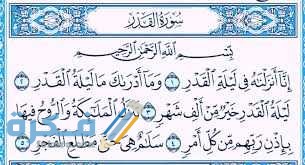 سُورَةُ الْقَدْرِ
بِسْمِ اللَّهِ الرَّحْمَٰنِ الرَّحِيمِ
إِنَّا أَنزَلْنَاهُ فِي لَيْلَةِ الْقَدْرِ ١ وَمَا أَدْرَاكَ مَا لَيْلَةُ الْقَدْرِ ٢
لَيْلَةُ الْقَدْرِ خَيْرٌ مِّنْ أَلْفِ شَهْرٍ ٣ تَنَزَّلُ الْمَلَائِكَةُ وَالرُّوحُ فِيهَا
بِإِذْنِ رَبِّهِم مِّن كُلِّ أَمْرٍ ٤ سَلَامٌ هِيَ حَتَّىٰ مَطْلَعِ الْفَجْرِ ٥
فكرة